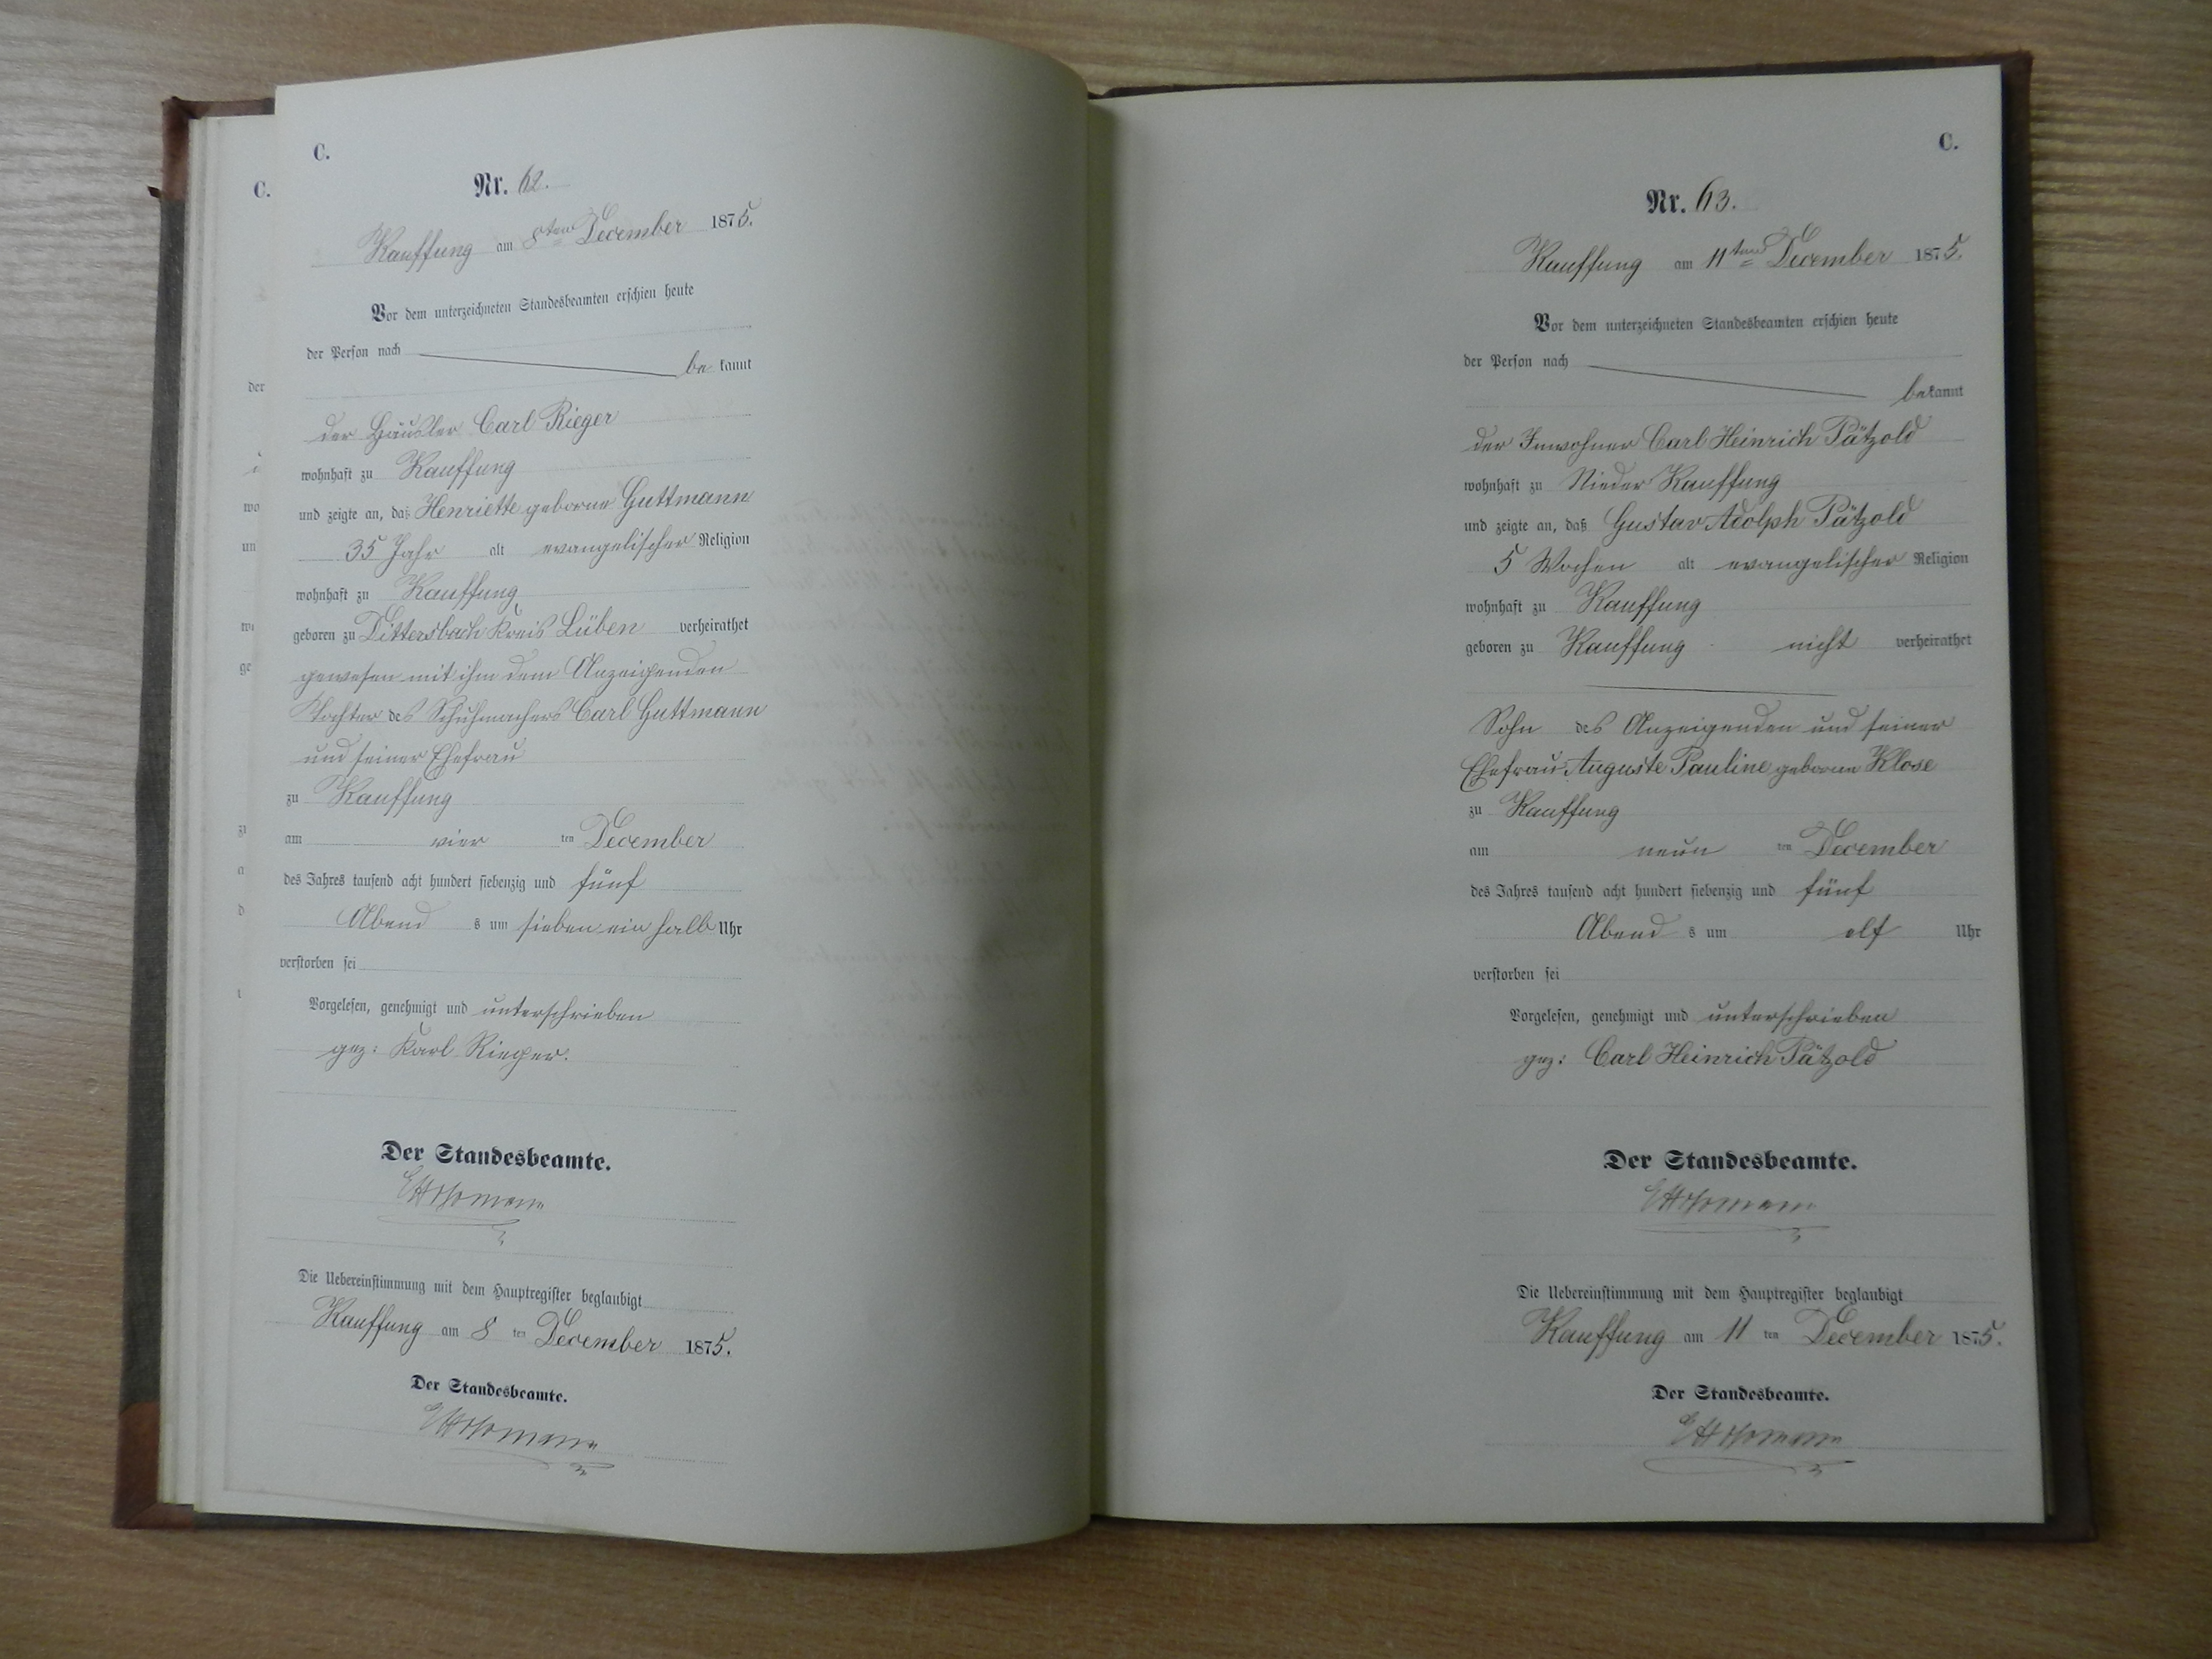 C.
C.
Nr. 62.
Kauffung am 8ten December 1875.
Vor dem unterzeichneten Standesbeamten erschien heute
der Person nach
be kannt
der Häusler Carl Rieger
wohnhaft zu Kauffung
und zeigte an, daß Henriette geborne Guttmann
35 Jahr alt evangelischer Religion
wohnhaft zu Kauffung
geboren zu Dittersbach Kreis Lüben verheirathet
gewesen mit ihm dem Anzeigenden
Tochter des Schuhmachers Carl Guttmann
und seiner Ehefrau
zu Kauffung
am vier ten December
des Jahres tausend acht hundert siebenzig und fünf
Abend s um sieben ein halb Uhr
verstorben sei
Vorgelesen, genehmigt und unterschrieben
gez: Karl Rieger.
Der Standesbeamte.
Die Uebereinstimmung mit dem Hauptregister beglaubigt
Kauffung am 8 ten December 1875.
Der Standesbeamte.
der
wo
un
ge
C.
Nr. 63.
Kauffung am 11ten December 1875.
Vor dem unterzeichneten Standesbeamten erschien heute
der Person nach
bekannt
der Inwohner Carl Heinrich Pätzold
wohnhaft zu Nieder Kauffung
und zeigte an, daß Gustav Adolph Pätzold
5 Wochen alt evangelischer Religion
wohnhaft zu Kauffung
geboren zu Kauffung nicht verheirathet
Sohn des Anzeigenden und seiner
Ehefrau Auguste Pauline geborne Klose
zu Kauffung
am neun ten December
des Jahres tausend acht hundert siebenzig und fünf
Abend s um elf Uhr
verstorben sei
Vorgelesen, genehmigt und unterschrieben
gez: Carl Heinrich Pätzold
Der Standesbeamte.
Die Uebereinstimmung mit dem Hauptregister beglaubigt
Kauffung am 11 ten December 1875.
Der Standesbeamte.